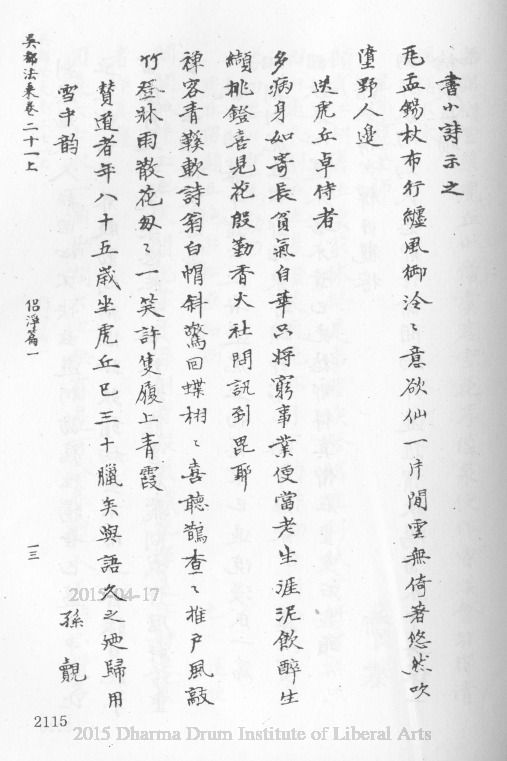 書小詩示之
瓦盂錫杖布行纏風御泠〻意欲仙一片閒雲無倚著悠然吹
墮野人邊
送虎丘卓侍者
多病身如寄長貧氣自華只將窮事業便當老生涯泥飲醉生
纈挑鐙喜見花殷勤香大社問訊到毘耶
禪客青鞵軟詩翁白帽斜驚回蝶栩〻喜聽鵲查〻推戶風敲
竹登牀雨散花匆〻一笑許隻履上青霞
贊道者年八十五歲坐虎丘已三十臘矣與語久之袖歸用
雪中韵
孫覿
吳都法乘卷二十一上
侶淨篇一
一三
2115
2015-04-17
2015 Dharma Drum Institute of Liberal Arts